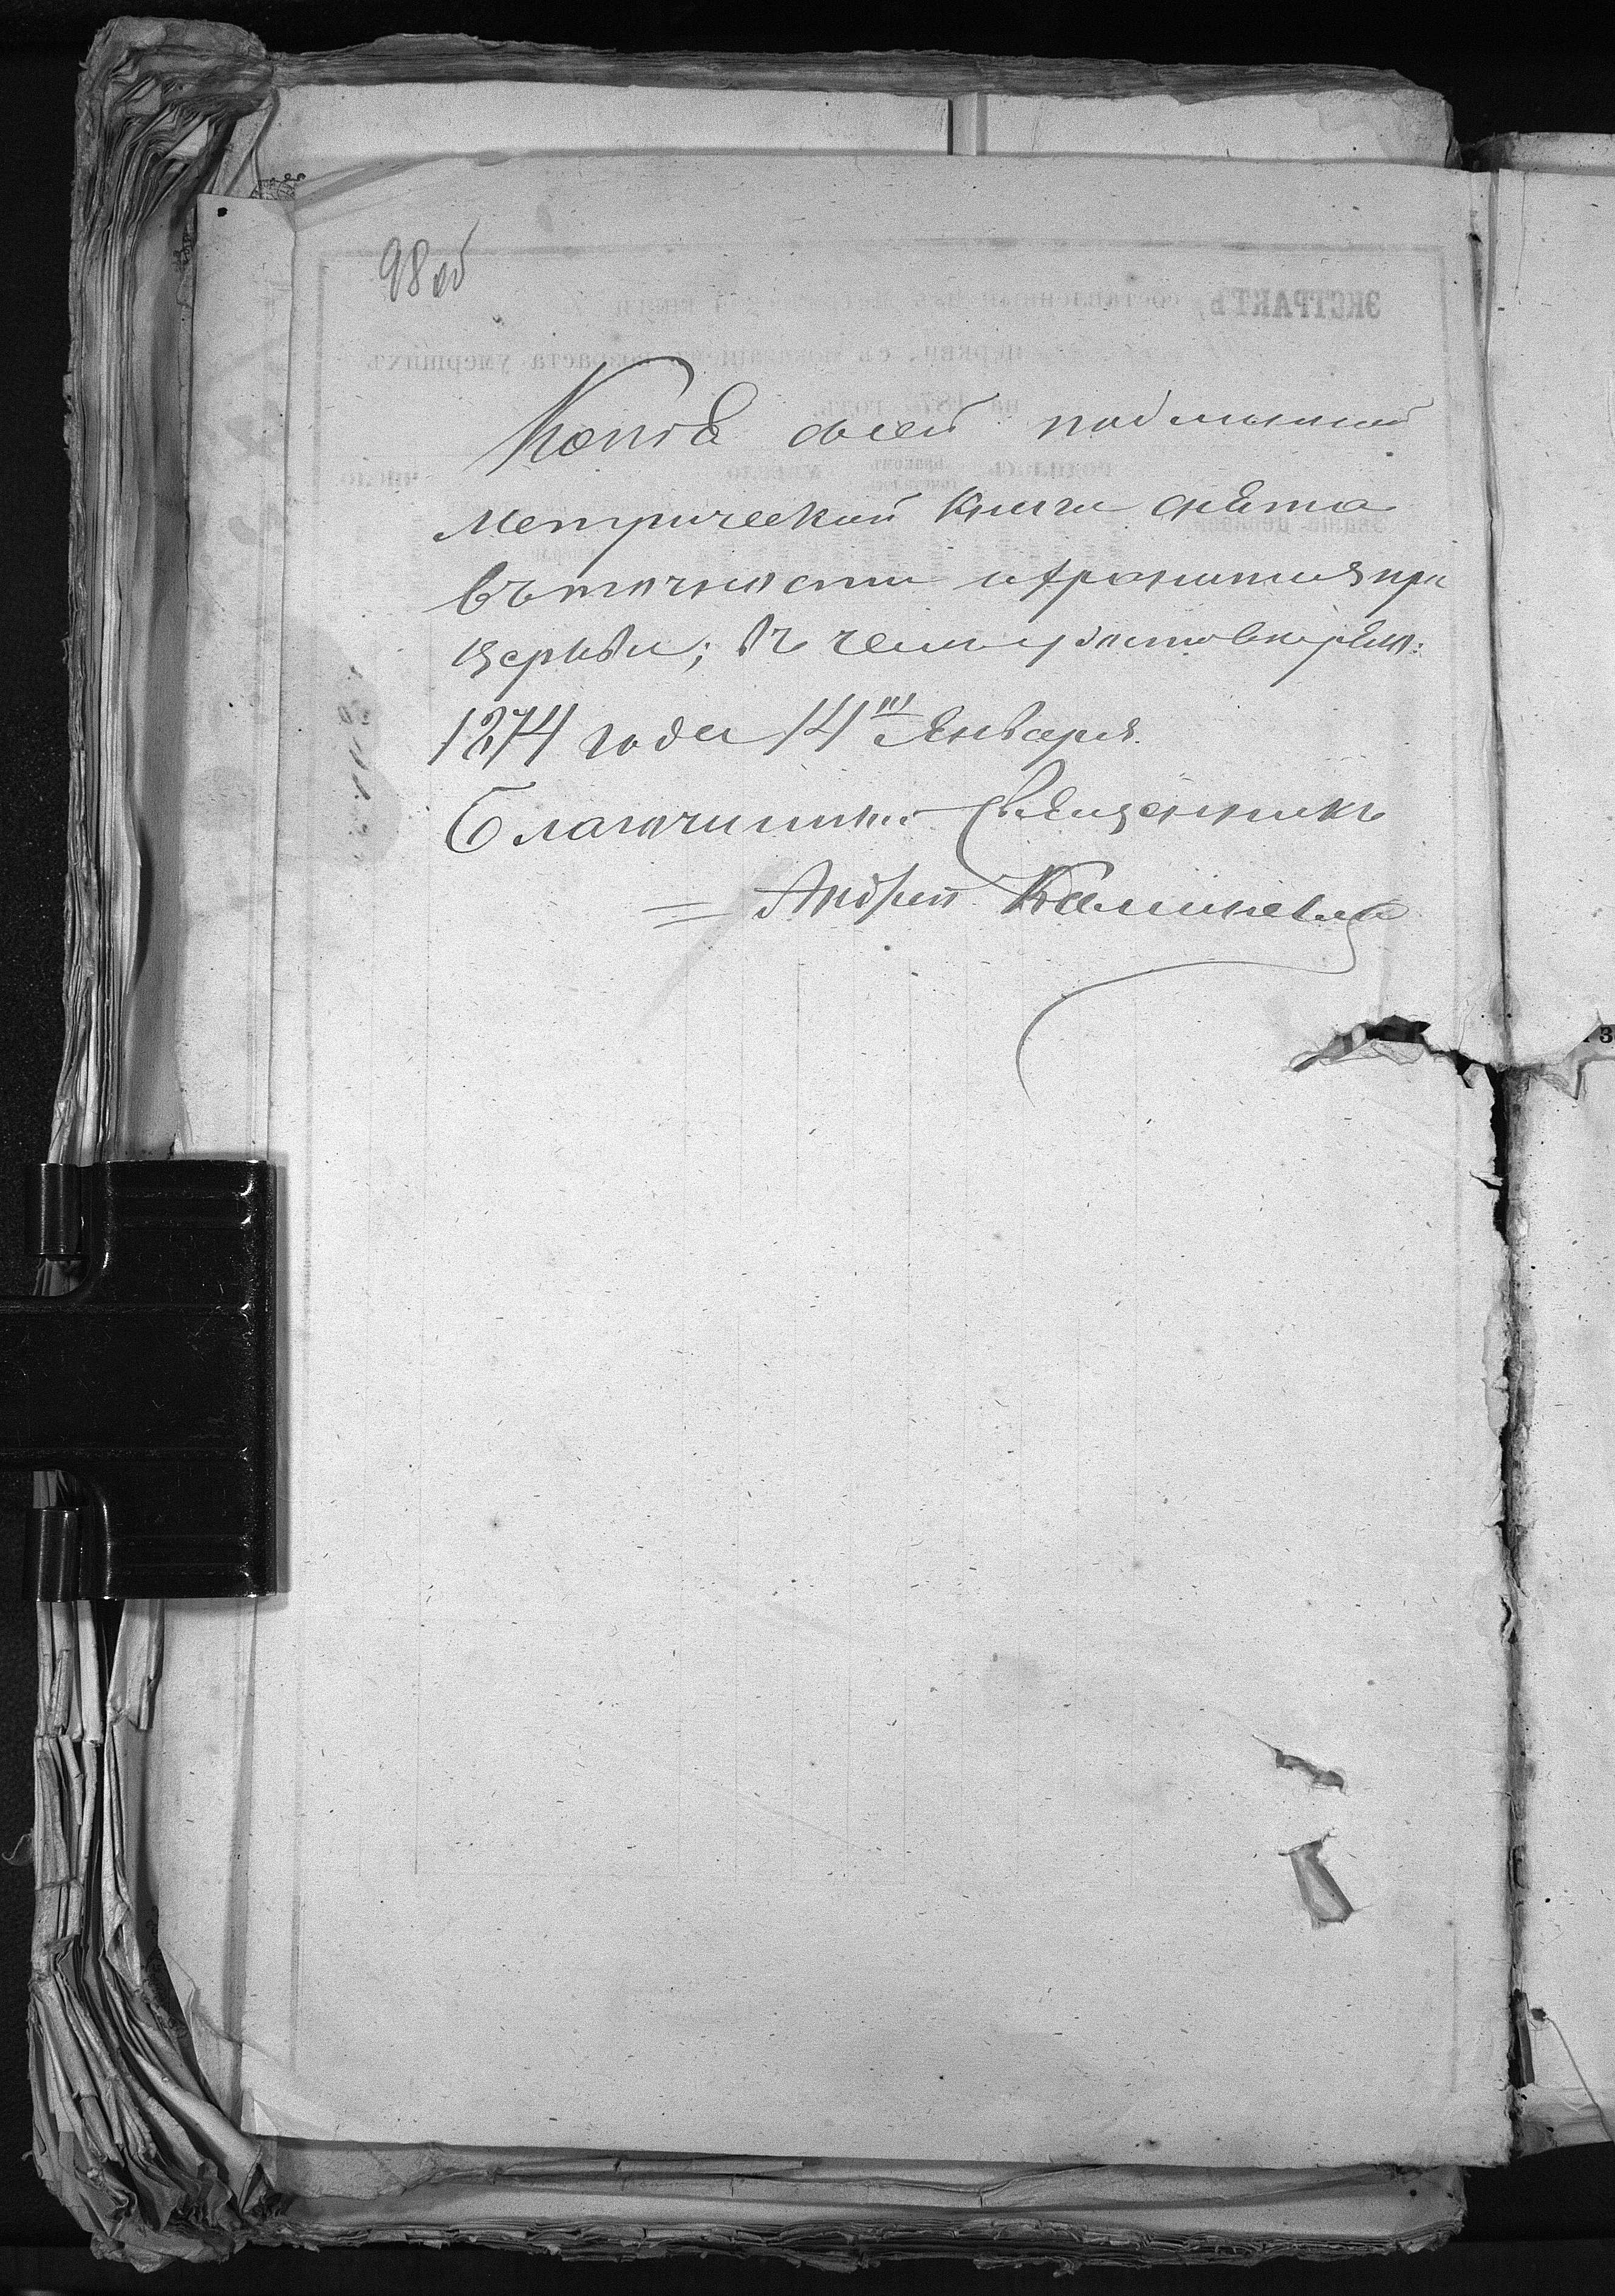 98 об
Копія сией подлинной
Метрической Книги снята
въ точности и хранится при
церкви; въ чемъ удостоверяю:
1874 года 14го Января.
Благочинный Священникъ
Андрей